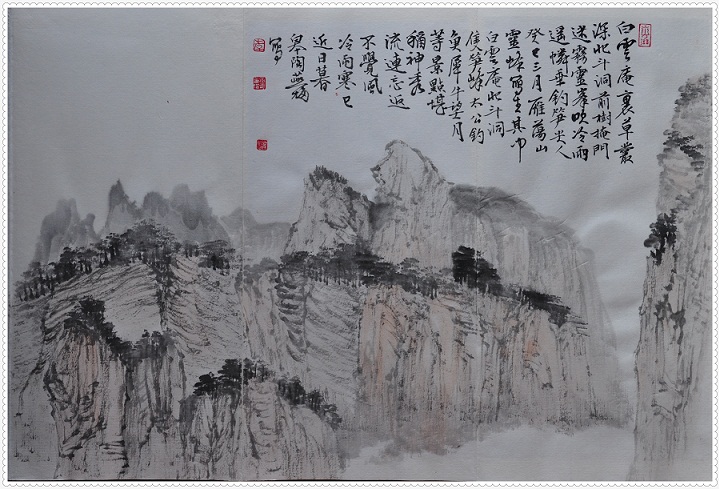 白雲庵裏草叢
深北斗洞前樹掩門
迷霧靈峯吹冷雨
遥憐垂釣笋尖人
癸巳三月雁蕩山
靈峰寫生其中
白雲庵北斗洞
笋峰太公釣
魚犀牛望月
等景點堪
稱神秀
流連忘返
不覺風
冷雨寒已
近日暮
寫